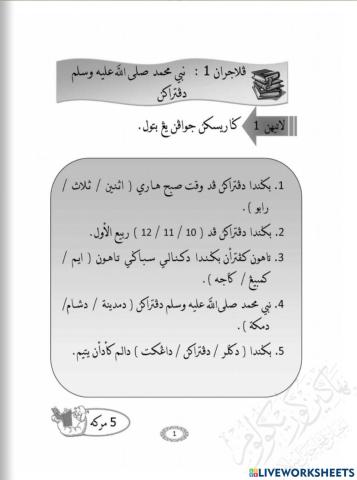 ڤلاجرن 1 : نبي محمد صلى الله عليه وسلم
دڤتراكن
لاتيهن 1
ݢاريسكن جواڤن يڠ بتول.
1. بݢيندا دڤتراكن ڤد وقت صبح هاري ( اثنين / ثلاث /
رابو ).
2. بݢيندا دڤتراكن ڤد ( 10 / 11 / 12 ) ربيع الأول.
3. تاهون كڤوترأن بݢيندا دكنالي سباݢاي تاهون ( ايم /
كمبيڠ / ݢاجه ).
4. نبي محمد صلى الله عليه وسلم دڤتراكن ( دمدينة / دشام/
دمكة ).
5. بݢيندا ( دكلر / دڤتراكن / داڠكت ) دالم كأدأن يتيم.
5 مركه
1
LIVEWORKSHEETS